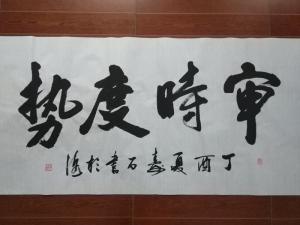 審時度勢
丁酉夏嘉石書於